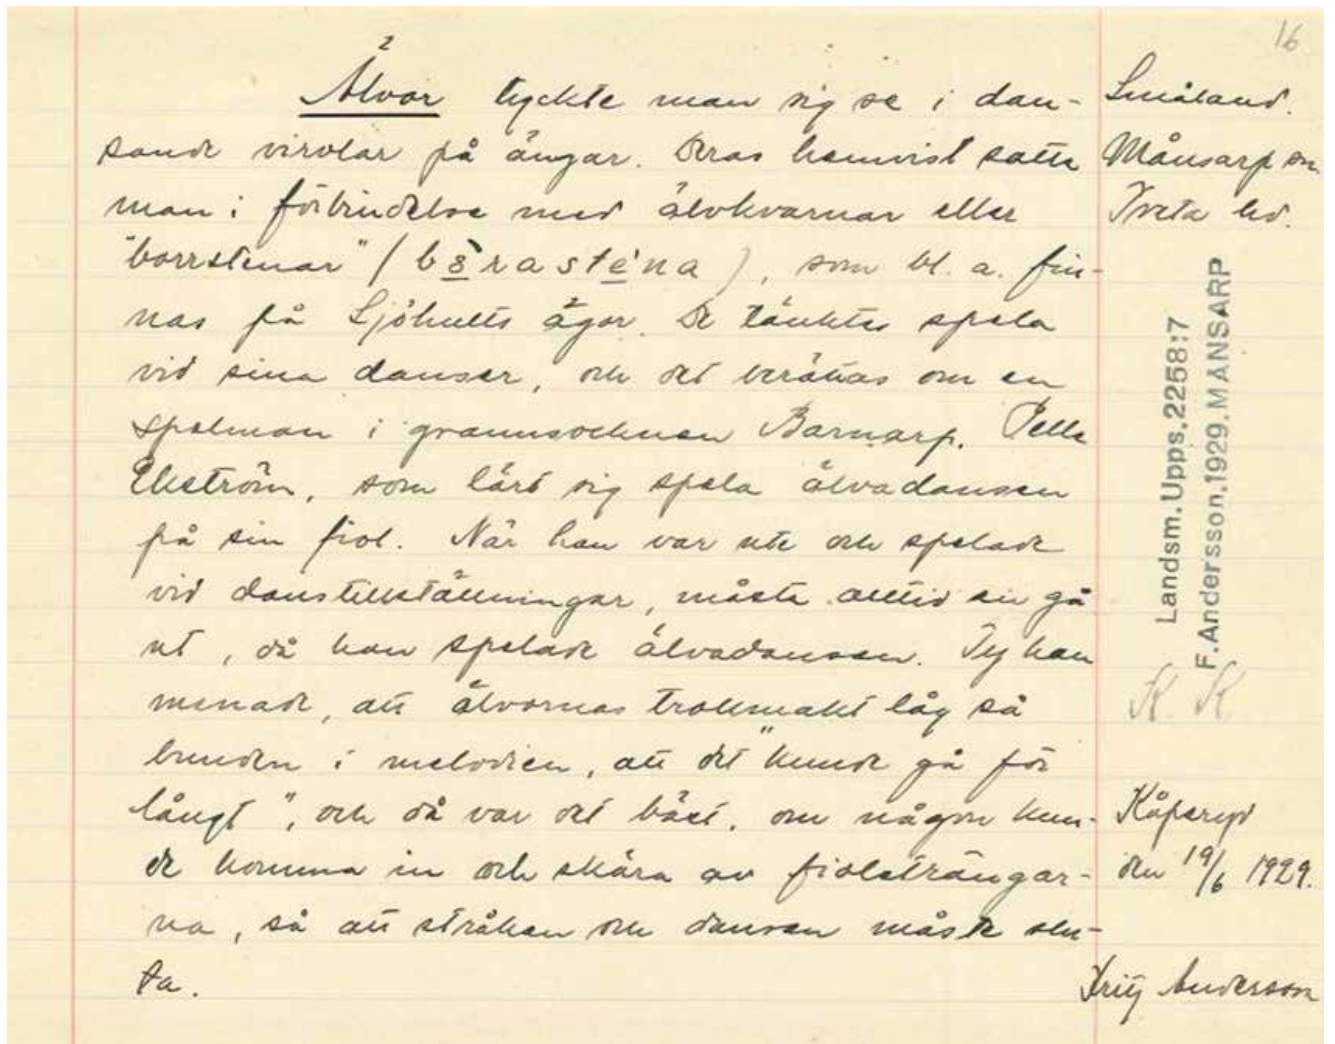 16
Älvor tyckte man sig se i dan-
sande virvlar på ängar. Deras hemvist satte
man i förbindelse med älvkvarnar eller
"borrstenar" (bårasténa), som bl. a. fin-
nas på Sjöhults ägor. De tänktes spela
vid sina danser, och det berättas om en
spelman i grannsocknen Barnarp, Pelle
Ekström, som lärt sig spela älvadansen
på sin fiol. När han var ute och spelade
vid danstillställningar, måste alltid en gå
ut, då han spelade älvadansen. Ty han
menade, att älvornas trollmakt låg så
bunden i melodien, att det "kunde gå för
långt", och då var det bäst, om någon kun-
de komma in och skära av fiolsträngar-
na, så att stråken och dansen måste slu-
ta.
Småland.
Månsarp sn.
Tveta hd.
Landsm. Upps. 2258:7
F. Andersson. 1929. MÅNSARP
K. K.
Kåperyd
den 19/6 1929.
Fritz Andersson